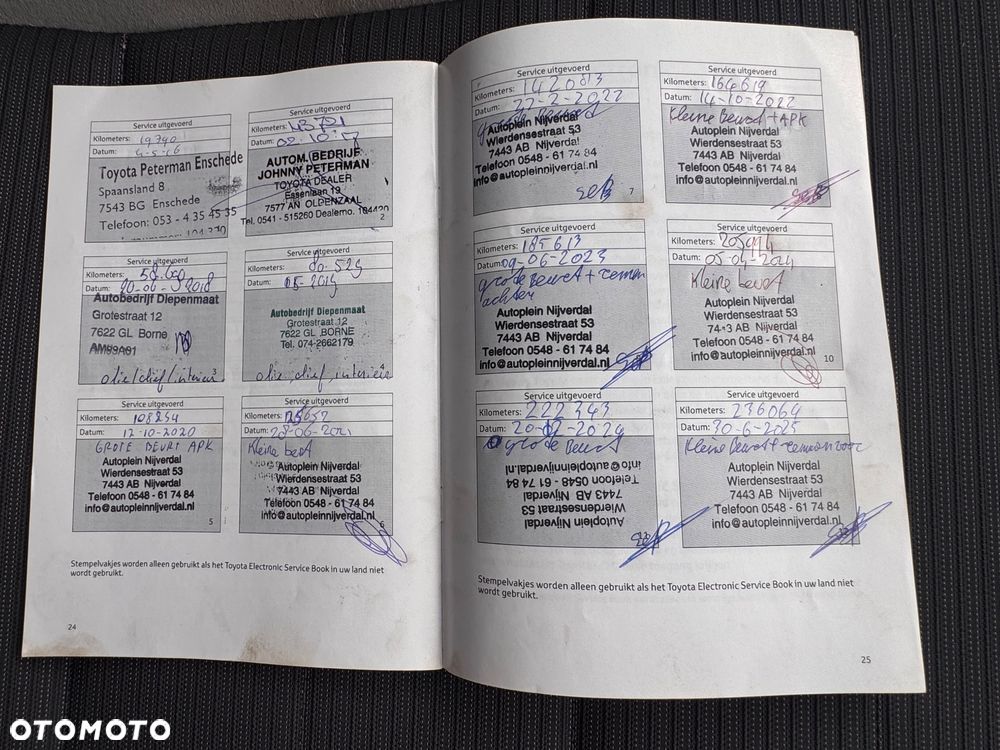 Service uitgevoerd
Kilometers: 19790
Datum: 4-5-'16
Toyota Peterman Enschede
Spaansland 8
7543 BG Enschede
Telefoon: 053 - 4 35 45 35
Service uitgevoerd
Kilometers:
Datum:
AUTOM. BEDRIJF
JOHNNY PETERMAN
TOYOTA DEALER
Essenlaan 19
7577 AN OLDENZAAL
Tel. 0541 - 515260 Dealerno. 104420
2
Service uitgevoerd
Kilometers:
Datum: 20-06-2018
Autobedrijf Diepenmaat
Grotestraat 12
7622 GL Borne
olie/dief/interieur
3
Service uitgevoerd
Kilometers: 80.529
Datum: 05-2019
Autobedrijf Diepenmaat
Grotestraat 12
7622 GL BORNE
Tel. 074-2662179
olie, dief, interieur
4
Service uitgevoerd
Kilometers: 108254
Datum: 12-10-2020
GROTE BEURT APK
Autoplein Nijverdal
Wierdensestraat 53
7443 AB Nijverdal
Telefoon 0548 - 61 74 84
info@autopleinnijverdal.nl
5
Service uitgevoerd
Kilometers:
Datum: 28-06-2021
Kleine beurt
Autoplein Nijverdal
Wierdensestraat 53
7443 AB Nijverdal
Telefoon 0548 - 61 74 84
info@autopleinnijverdal.nl
6
Stempelvakjes worden alleen gebruikt als het Toyota Electronic Service Book in uw land niet
wordt gebruikt.
24
Service uitgevoerd
Kilometers: 142083
Datum: 22-2-2022
grote Beurt
Autoplein Nijverdal
Wierdensestraat 53
7443 AB Nijverdal
Telefoon 0548 - 61 74 84
info@autopleinnijverdal.nl
7
Service uitgevoerd
Kilometers: 164619
Datum: 14-10-2022
Kleine Beurt + APK
Autoplein Nijverdal
Wierdensestraat 53
7443 AB Nijverdal
Telefoon 0548 - 61 74 84
info@autopleinnijverdal.nl
Service uitgevoerd
Kilometers: 185613
Datum: 09-06-2023
grote Beurt + remmen
achter
Autoplein Nijverdal
Wierdensestraat 53
7443 AB Nijverdal
Telefoon 0548 - 61 74 84
info@autopleinnijverdal.nl
Service uitgevoerd
Kilometers:
Datum: 05-04-2024
Kleine beurt
Autoplein Nijverdal
Wierdensestraat 53
7443 AB Nijverdal
Telefoon 0548 - 61 74 84
info@autopleinnijverdal.nl
10
Service uitgevoerd
Kilometers: 222343
Datum: 20-12-2024
grote Beurt
Autoplein Nijverdal
Wierdensestraat 53
7443 AB Nijverdal
Telefoon 0548 - 61 74 84
info@autopleinnijverdal.nl
Service uitgevoerd
Kilometers: 236064
Datum: 20-6-2025
Kleine Beurt + remmen voor
Autoplein Nijverdal
Wierdensestraat 53
7443 AB Nijverdal
Telefoon 0548 - 61 74 84
info@autopleinnijverdal.nl
Stempelvakjes worden alleen gebruikt als het Toyota Electronic Service Book in uw land niet
wordt gebruikt.
25
OTOMOTO